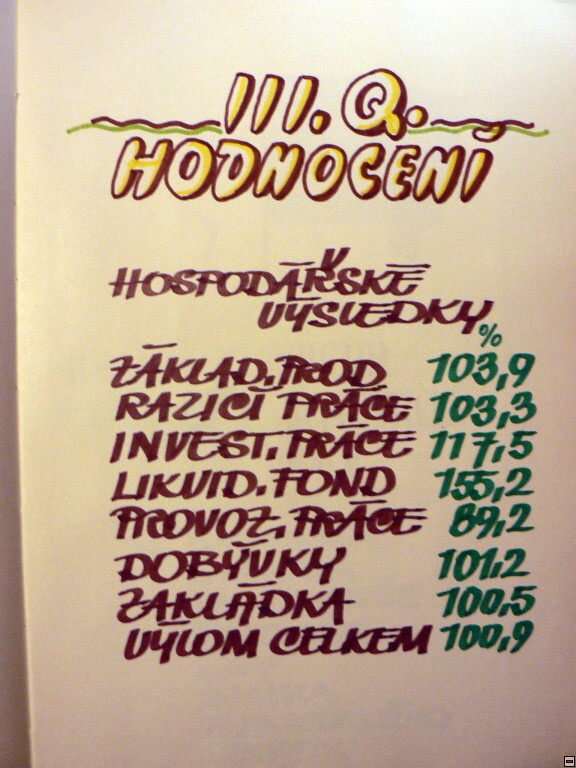 III. Q.
HODNOCENÍ
HOSPODÁŘSKÉ
VÝSLEDKY
%
ZÁKLAD. PROD 103,9
RAZICÍ PRÁCE 103,3
INVEST. PRÁCE 117,5
LIKVID. FOND 155,2
PROVOZ. PRÁCE 89,2
DOBÝVKY 101,2
ZAKLÁDKA 100,5
VÝLOM CELKEM 100,9